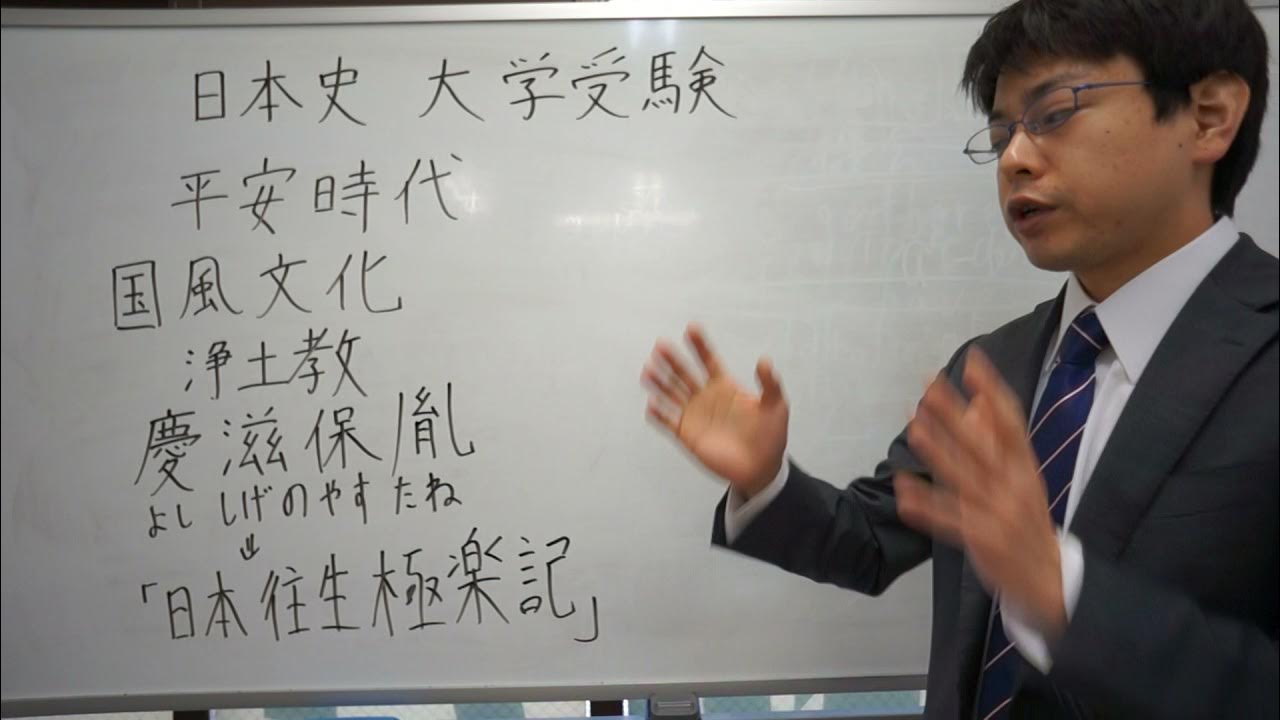 日本史 大学受験
平安時代
国風文化
浄土教
慶滋保胤
よししげのやすたね
↓
「日本往生極楽記」